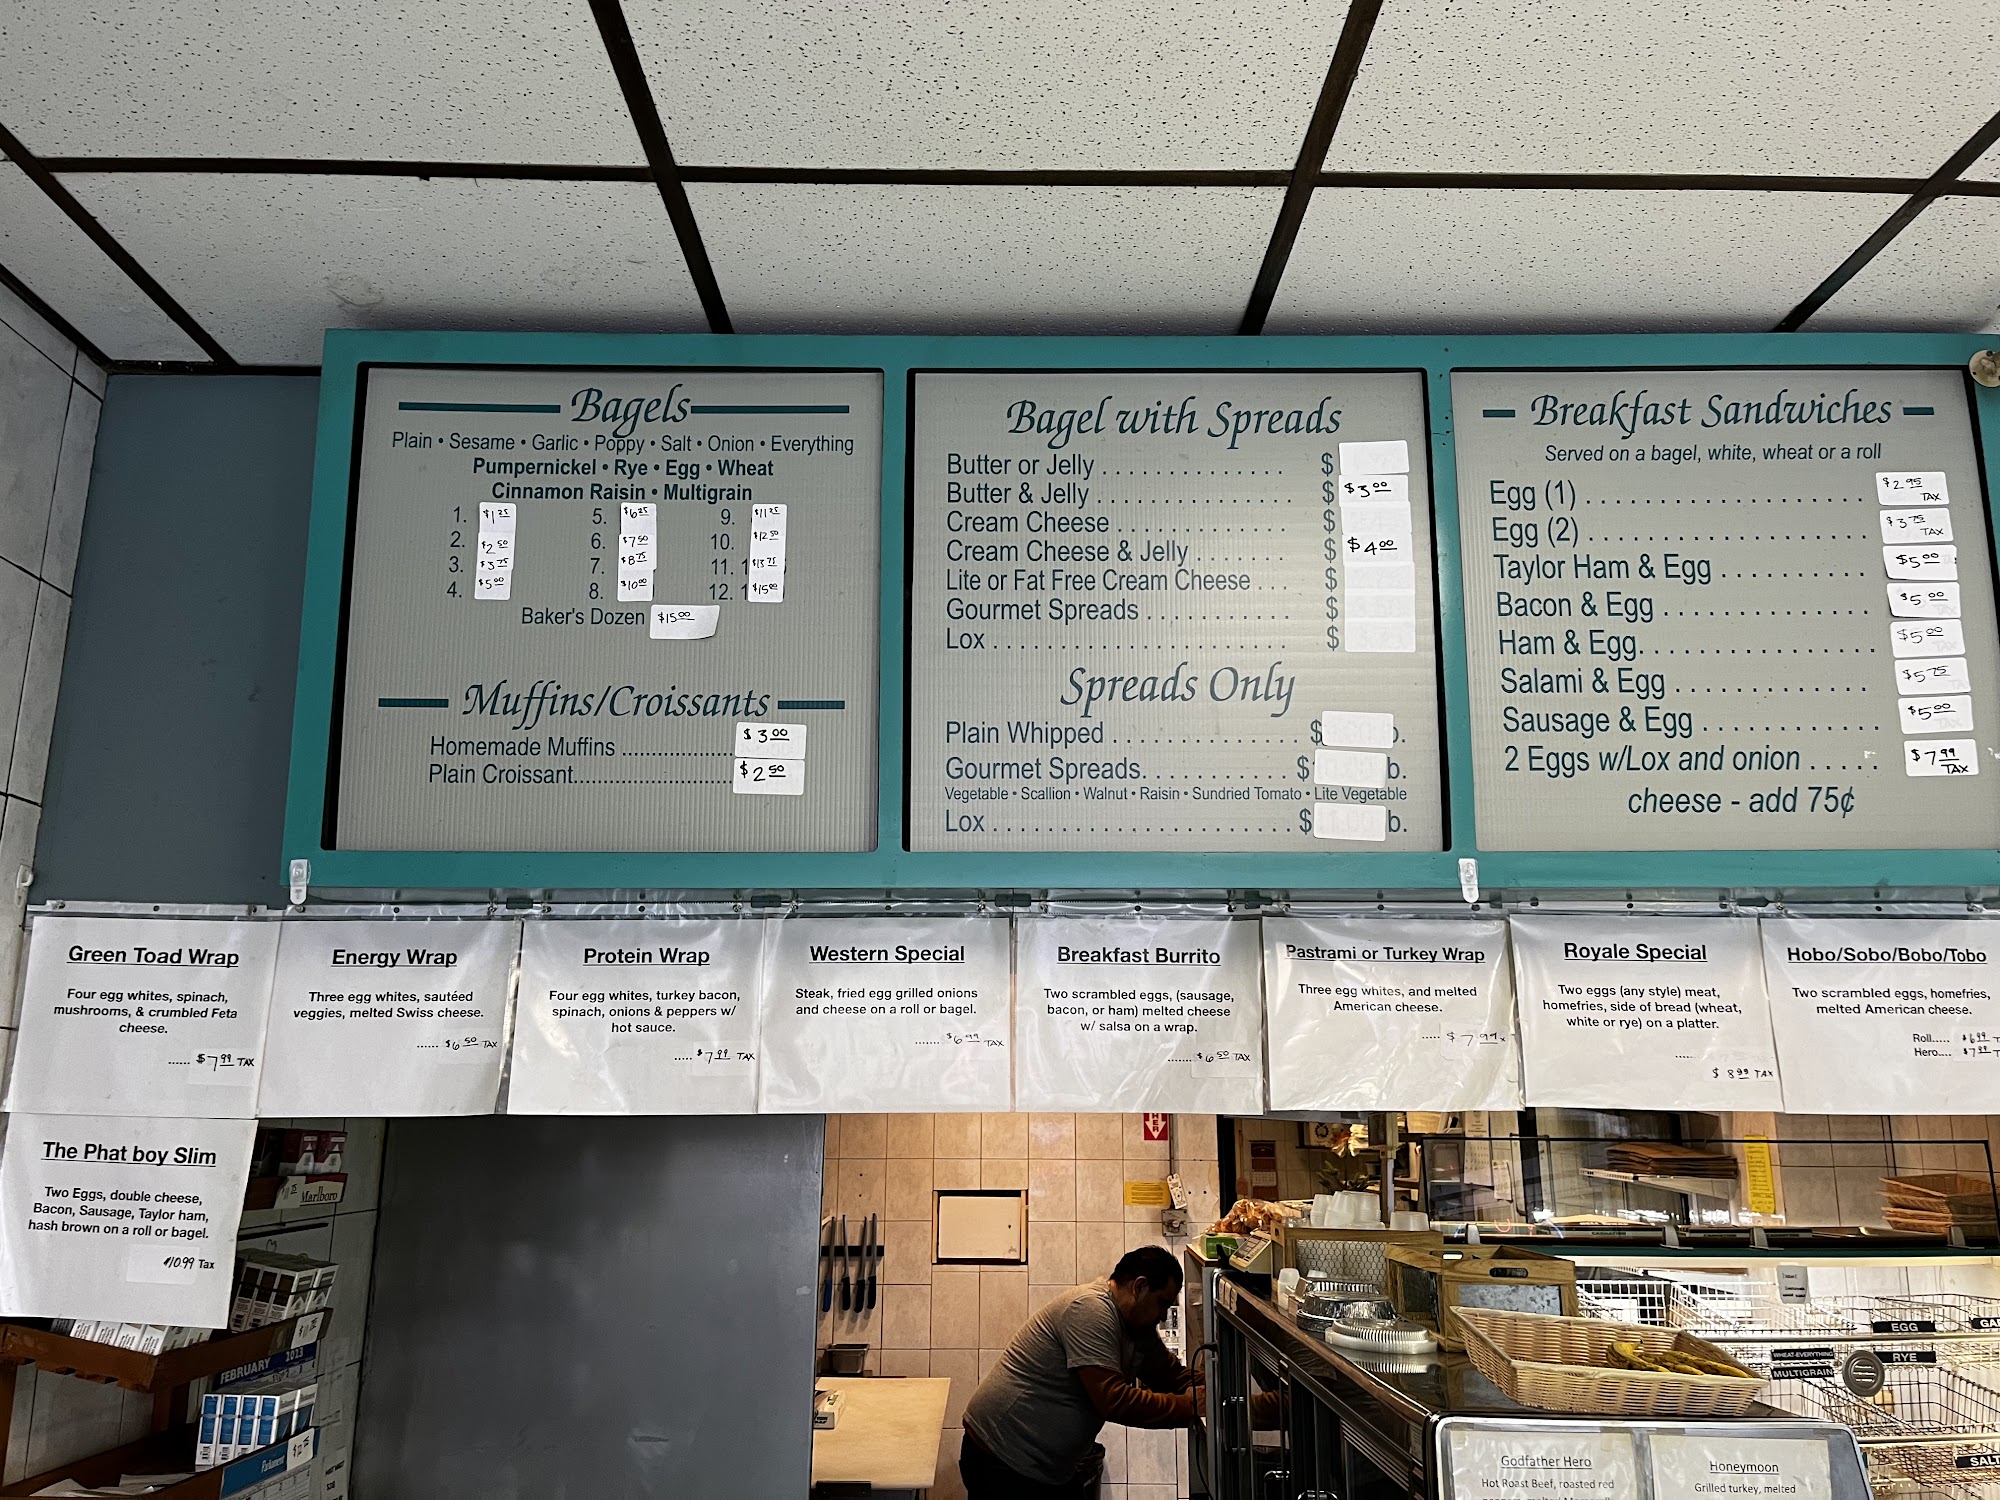 Bagels
Plain • Sesame • Garlic • Poppy • Salt • Onion • Everything
Pumpernickel • Rye • Egg • Wheat
Cinnamon Raisin • Multigrain
1. $1 25
2. $2 50
3. $3 75
4. $5 00
5. $6 25
6. $7 50
7. $8 75
8. $10 00
9. $11 25
10. $12 50
11. $13 75
12. $15 00
Baker's Dozen $15 00
Muffins/Croissants
Homemade Muffins .................... $3 00
Plain Croissant............................ $2 50
Bagel with Spreads
Butter or Jelly . . . . . . . . . . . . . . $
Butter & Jelly . . . . . . . . . . . . . . $ $3 00
Cream Cheese . . . . . . . . . . . . . $
Cream Cheese & Jelly . . . . . . . . $ $4 00
Lite or Fat Free Cream Cheese . . . $
Gourmet Spreads . . . . . . . . . . . $
Lox . . . . . . . . . . . . . . . . . . . . . . $
Spreads Only
Plain Whipped . . . . . . . . . . . . . . . $ b.
Gourmet Spreads. . . . . . . . . . . . $ b.
Vegetable • Scallion • Walnut • Raisin • Sundried Tomato • Lite Vegetable
Lox . . . . . . . . . . . . . . . . . . . . . . . $ b.
Breakfast Sandwiches
Served on a bagel, white, wheat or a roll
Egg (1) . . . . . . . . . . . . . . . . . . . . . $2 95 TAX
Egg (2) . . . . . . . . . . . . . . . . . . . . . $3 75 TAX
Taylor Ham & Egg . . . . . . . . . . $5 00
Bacon & Egg . . . . . . . . . . . . . . . $5 00
Ham & Egg. . . . . . . . . . . . . . . . . $5 00
Salami & Egg . . . . . . . . . . . . . . $5 75
Sausage & Egg . . . . . . . . . . . . $5 00
2 Eggs w/Lox and onion . . . . . $7 99 TAX
cheese - add 75¢
Green Toad Wrap
Four egg whites, spinach,
mushrooms, & crumbled Feta
cheese.
...... $7 99 TAX
Energy Wrap
Three egg whites, sautéed
veggies, melted Swiss cheese.
...... $6 50 TAX
Protein Wrap
Four egg whites, turkey bacon,
spinach, onions & peppers w/
hot sauce.
..... $7 99 TAX
Western Special
Steak, fried egg grilled onions
and cheese on a roll or bagel.
....... $6 99 TAX
Breakfast Burrito
Two scrambled eggs, (sausage,
bacon, or ham) melted cheese
w/ salsa on a wrap.
....... $6 50 TAX
Pastrami or Turkey Wrap
Three egg whites, and melted
American cheese.
..... $7 99
Royale Special
Two eggs (any style) meat,
homefries, side of bread (wheat,
white or rye) on a platter.
.....
$8 99 TAX
Hobo/Sobo/Bobo/Tobo
Two scrambled eggs, homefries,
melted American cheese.
Roll..... $6 99 T
Hero.... $7 99 T
The Phat boy Slim
Two Eggs, double cheese,
Bacon, Sausage, Taylor ham,
hash brown on a roll or bagel.
$10.99 Tax
Marlboro
FEBRUARY 2023
Parliament
EGG
RYE
WHEAT-EVERYTHING
MULTIGRAIN
SALT
Godfather Hero
Hot Roast Beef, roasted red
Honeymoon
Grilled turkey, melted